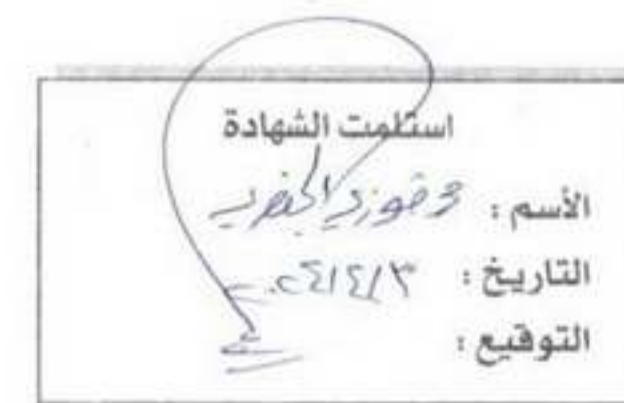 استلمت الشهادة
الأسم : فوزي
التاريخ : ٢٠٢٤/٤/٣
التوقيع :